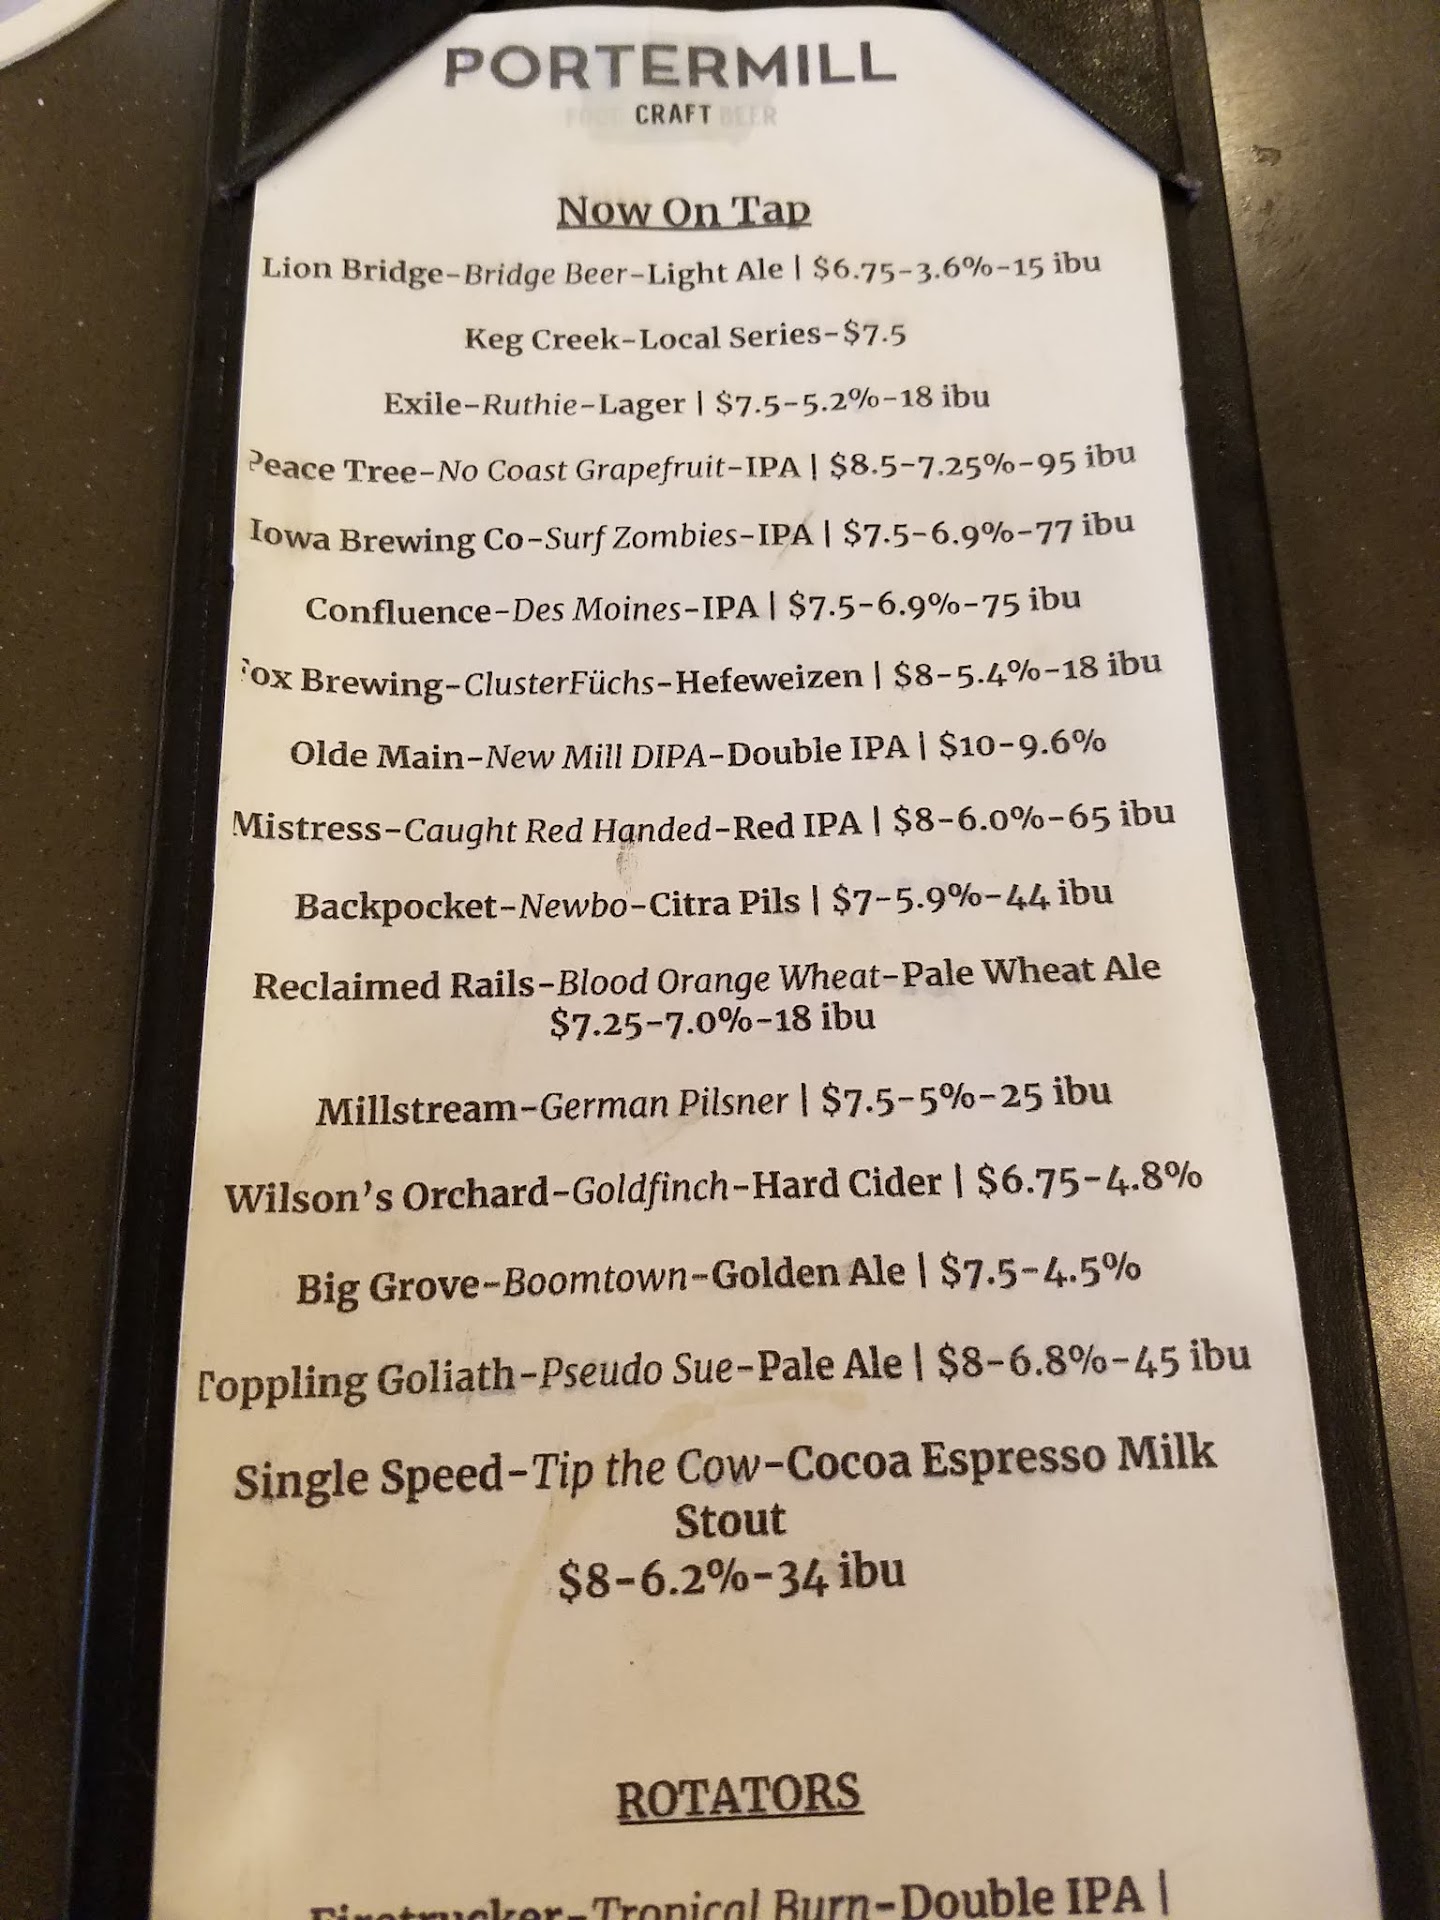 PORTERMILL
FOOD CRAFT BEER
Now On Tap
Lion Bridge-Bridge Beer-Light Ale | $6.75-3.6%-15 ibu
Keg Creek-Local Series-$7.5
Exile-Ruthie-Lager | $7.5-5.2%-18 ibu
Peace Tree-No Coast Grapefruit-IPA | $8.5-7.25%-95 ibu
Iowa Brewing Co-Surf Zombies-IPA | $7.5-6.9%-77 ibu
Confluence-Des Moines-IPA | $7.5-6.9%-75 ibu
Fox Brewing-ClusterFüchs-Hefeweizen | $8-5.4%-18 ibu
Olde Main-New Mill DIPA-Double IPA | $10-9.6%
Mistress-Caught Red Handed-Red IPA | $8-6.0%-65 ibu
Backpocket-Newbo-Citra Pils | $7-5.9%-44 ibu
Reclaimed Rails-Blood Orange Wheat-Pale Wheat Ale
$7.25-7.0%-18 ibu
Millstream-German Pilsner | $7.5-5%-25 ibu
Wilson's Orchard-Goldfinch-Hard Cider | $6.75-4.8%
Big Grove-Boomtown-Golden Ale | $7.5-4.5%
Toppling Goliath-Pseudo Sue-Pale Ale | $8-6.8%-45 ibu
Single Speed-Tip the Cow-Cocoa Espresso Milk
Stout
$8-6.2%-34 ibu
ROTATORS
Firetrucker-Tropical Burn-Double IPA |